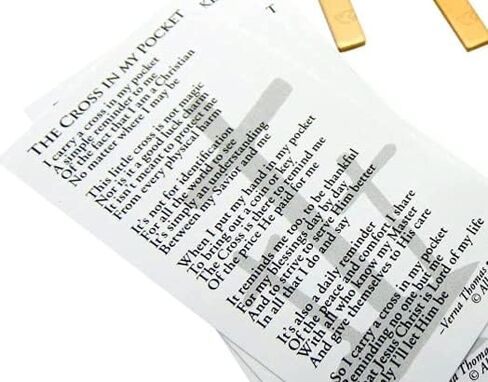 THE CROSS IN MY POCKET
I carry a cross in my pocket
A simple reminder to me
Of the fact that I am a Christian
No matter where I may be
This little cross is not magic
Nor is it a good luck charm
It isn't meant to protect me
From every physical harm
It's not for identification
For all the world to see
It's simply an understanding
Between my Savior and me
When I put my hand in my pocket
To bring out a coin or key
The Cross is there to remind me
Of the price He paid for me
It reminds me too, to be thankful
For my blessings day by day
And to strive to serve Him better
In all that I do and say
It's also a daily reminder
Of the peace and comfort I share
With all who know my Master
And give themselves to His care
So I carry a cross in my pocket
Reminding no one but me
That Jesus Christ is Lord of my life
only I'll let Him be
–Verna Thomas
© Al
Verna Thomas
© Al
KE
T